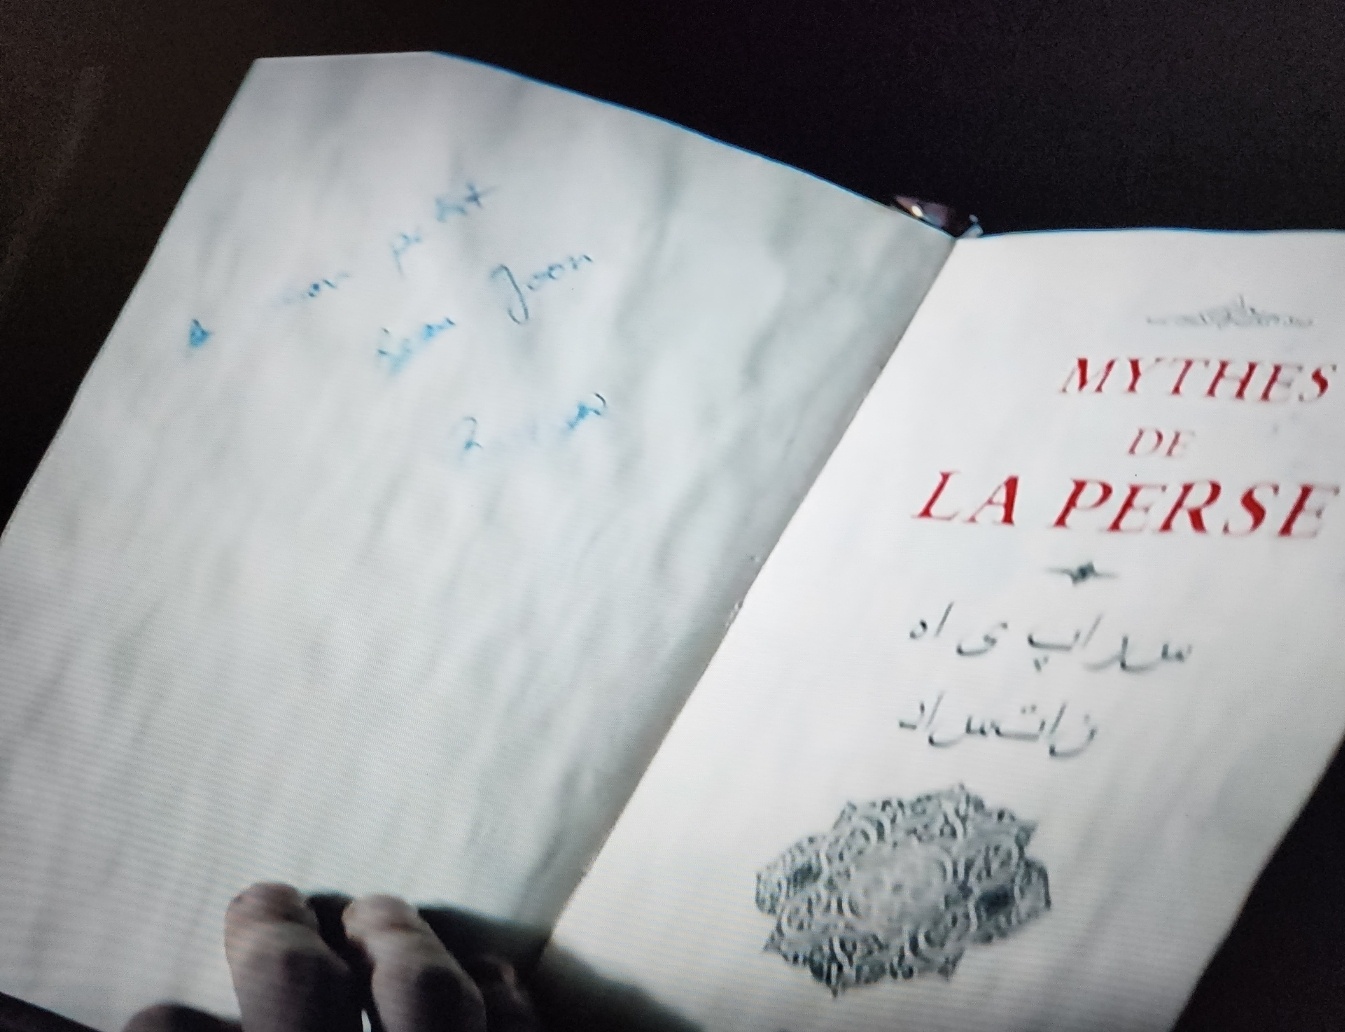 mon petit
Sean Joon
MYTHES
DE
LA PERSE
سراپ ی اه
ناتساد